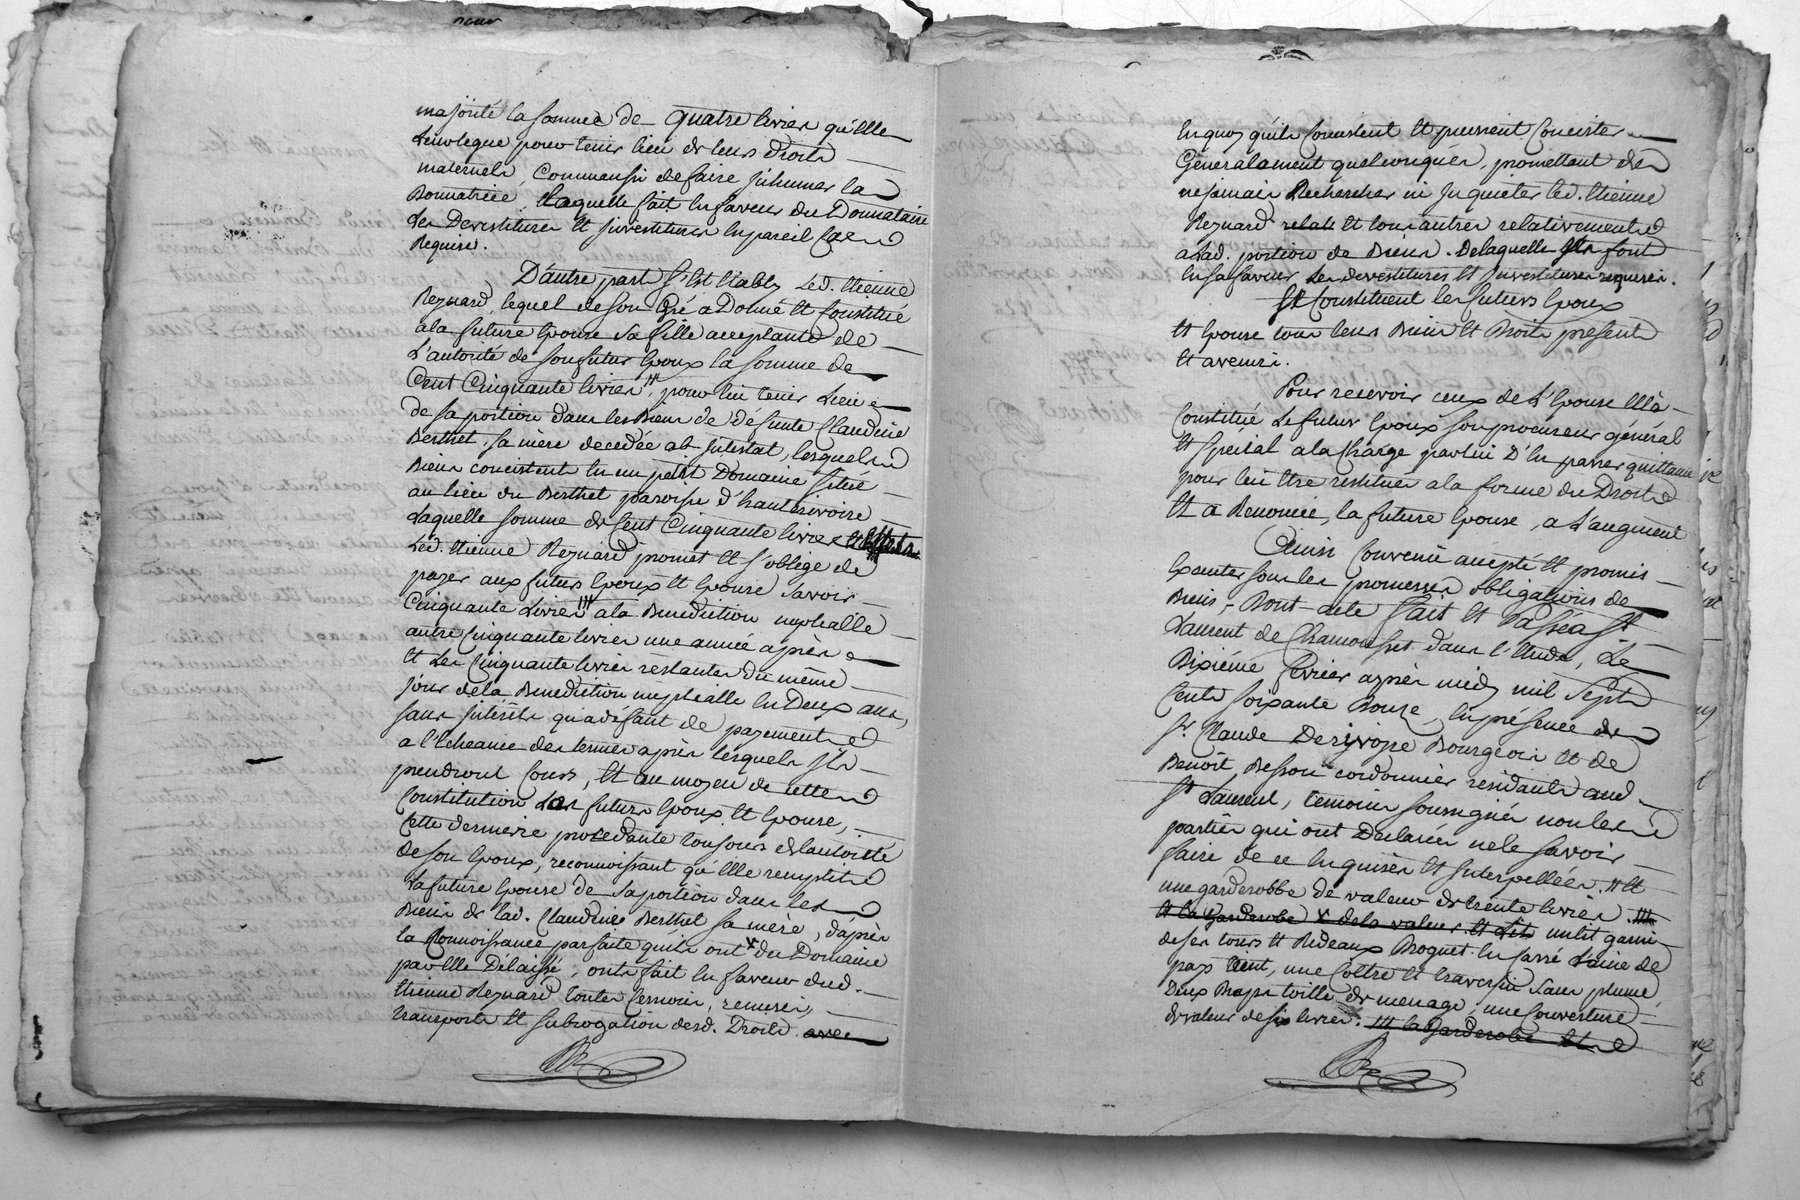 majorité la somme de quatre livres qu'Elle
Leur legue pour tenir lieu de leurs droits
maternels, Comme aussi de faire inhumer la
Donnatrice. Laquelle fait En faveur du Donnataire
Les Devestitures Et investitures En pareil Cas
Requises.
D'autre part s'Est Etably Led. Etienne
Reynard, lequel de son Gré a Donné Et Constitué
a la future Epouse sa fille acceptante de
L'autorité de son futur Epoux la somme de
Cent Cinquante livres, pour lui tenir Lieu
de sa portion dans les Biens de défunte Claudine
Berthet sa mère decedée ab-intestat, lesquels
Biens concistent En un petit Domaine situé
au lieu du Berthet paroisse d'hauterivoire
Laquelle somme de Cent Cinquante livres
Led. Etienne Reynard promet Et s'oblige de
payer aux futurs Epoux Et Epouse savoir
Cinquante Livres a la Benediction nuptialle
autre Cinquante livres une année après
Et Les Cinquante livres restantes du même
jour de la Benediction nuptialle En Deux ans,
sans intérêts qu'a défaut de payement
a l'Echeance des termes après lesquels ils
prendront Cours, Et au moyen de cette
Constitution Les futurs Epoux Et Epouse,
Cette derniere procedante toujours de l'autorité
de son Epoux, reconnoissant qu'Elle remplit
La future Epouse de sa portion dans les
Biens de lad. Claudine Berthet sa mère, d'après
la Connoissance parfaite qu'ils ont du Domaine
par Elle Délaissé, ont fait En faveur dud.
Etienne Reynard toutes Cessions, remises,
transports Et subrogation desd. Droits avec
En quoy qu'ils Concistent Et puissent Concister
Généralement quelconques, promettant de
ne jamais Rechercher ni Inquieter led. Etienne
Reynard relati Et tous autres relativement
a Lad. portion de Biens. De laquelle Ils font
En sa faveur Les devestitures Et Investitures requises.
Se Constituent les futurs Epoux
Et Epouse tous leurs Biens Et Droits présents
Et avenirs.
Pour recevoir ceux de L'Epouse Elle a
Constitué Le futur Epoux son procureur général
Et special a la Charge par lui D'En passer quittance
pour lui Etre restitués a la forme du Droit
Et a Renoncé, la future Epouse, a L'augment
Ainsi Convenu accepté Et promis
Executer sous les promesses obligations de
Biens, Dont acte Fait Et Passé a St
Laurent de Chamousset dans l'Etude, Le
Dixiéme fevrier après midy mil Sept
Cents soixante Douze, En présence de
Sr. Claude Bourgeois Et de
Benoit Besson cordonnier résidants aud.
St Laurent, temoins soussignés non les
parties qui ont Declarées ne le savoir
faire de ce Enquises Et Interpellées. Et
une garderobbe de valeur de trente livres.
Et la Garderobe de la valeur Et Lit un lit garni
de ses tours Et Rideaux Droguet En sarré Laine de
pays Vert, une Coltre Et traversin sans plume,
Deux Draps toille de menage, une Couverture
de valeur de six livres. la Garderobe Et